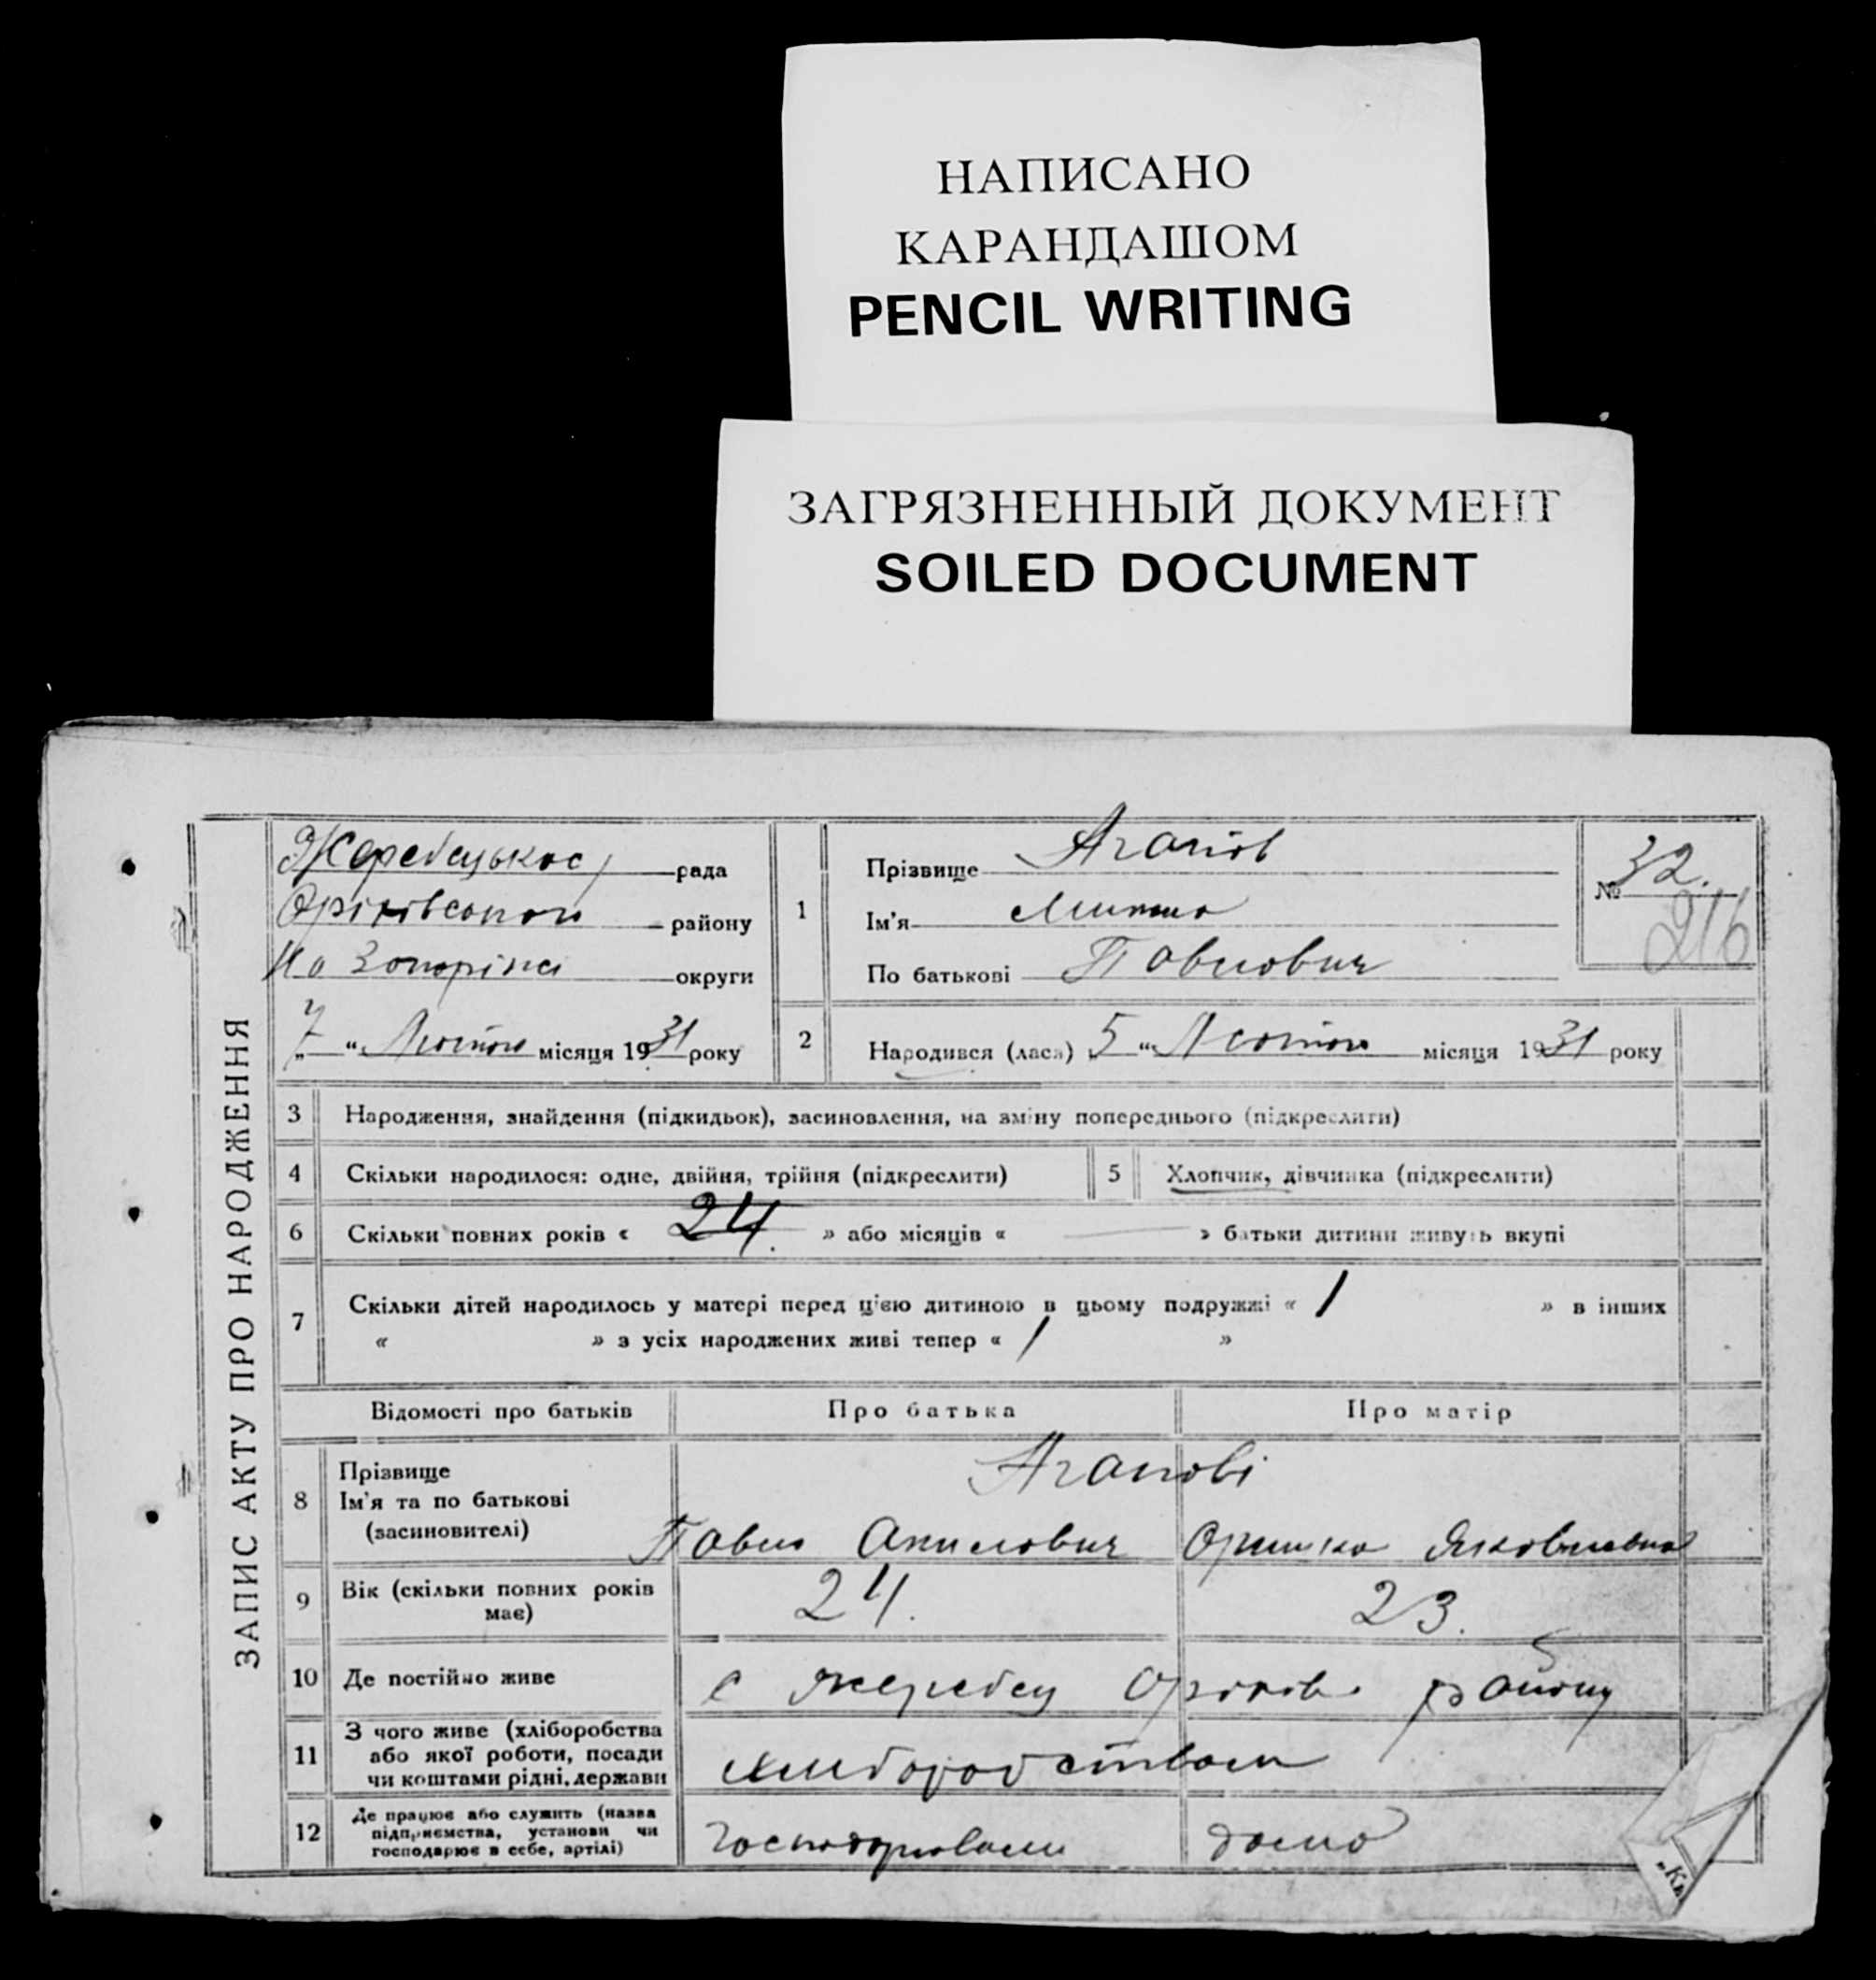 НАПИСАНО
КАРАНДАШОМ
PENCIL WRITING
ЗАГРЯЗНЕННЫЙ ДОКУМЕНТ
SOILED DOCUMENT
ЗАПИС АКТУ ПРО НАРОДЖЕННЯ
Жеребецькос рада
Оріхівського району
На Запоріжі округи
„7“ Лютого місяця 1931 року
1
Прізвище Агапов
Ім'я
По батькові Павлович
№ 32.
216
2
Народився (лася) 5 “ Лютого місяця 1931 року
3 Народження, знайдення (підкидьок), засиновлення, на зміну попереднього (підкреслити)
4 Скільки народилося: одне, двійня, трійня (підкреслити)
5 Хлопчик, дівчинка (підкреслити)
6 Скільки повних років « 24. » або місяців « — » батьки дитини живуть вкупі
7 Скільки дітей народилось у матері перед цією дитиною в цьому подружжі « 1 » в інших
« » з усіх народжених живі тепер « 1 »
Відомості про батьків Про батька Про матір
8 Прізвище
Ім'я та по батькові
(засиновителі)
Агапові
Павло Оришка Яковлевна
9 Вік (скільки повних років
має)
24. 23.
10 Де постійно живе
с Жеребец Оріхів. району
11 З чого живе (хліборобства
або якої роботи, посади
чи коштами рідні, держави
хліборобством
12 Де працює або служить (назва
підприємства, установи чи
господарює в себе, артілі)
дома
„Ки